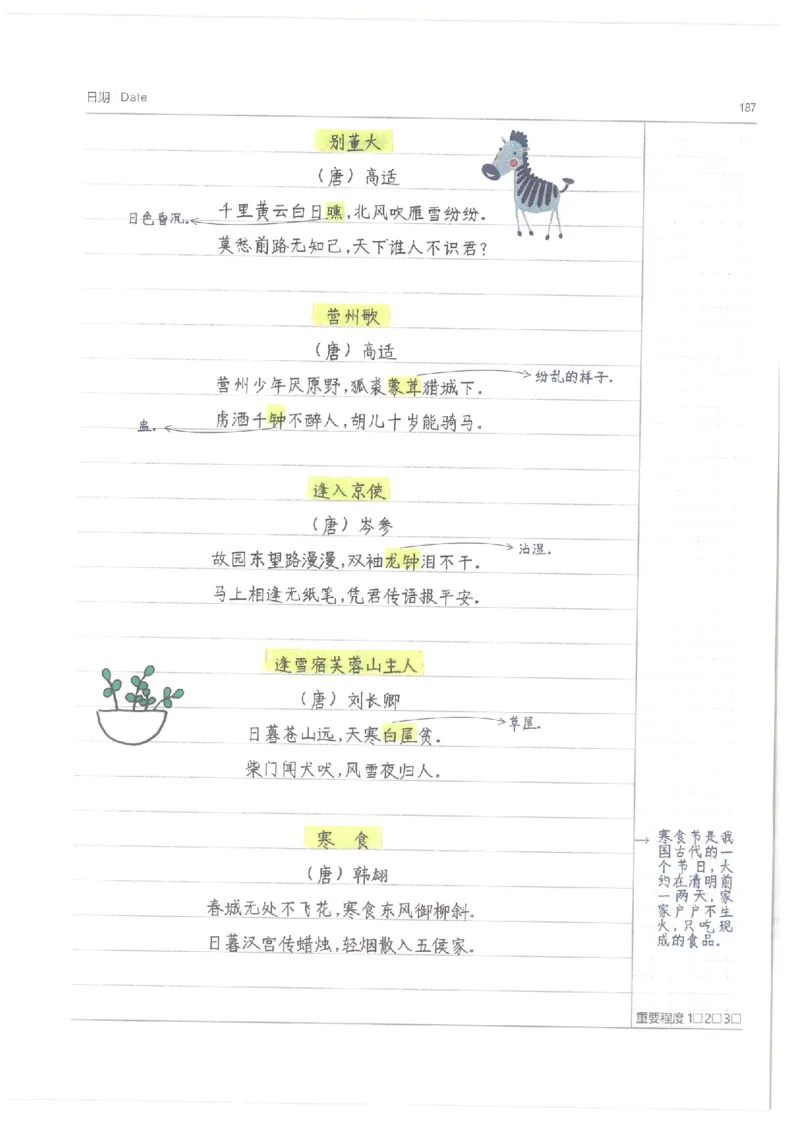 日期 Date
187
别董大
(唐)高适
千里黄云白日曛,北风吹雁雪纷纷.
日色昏沉.
莫愁前路无知己,天下谁人不识君?
营州歌
(唐)高适
营州少年厌原野,狐裘蒙茸猎城下.
纷乱的样子.
虏酒千钟不醉人,胡儿十岁能骑马.
盅.
逢入京使
(唐)岑参
故园东望路漫漫,双袖龙钟泪不干.
沾湿.
马上相逢无纸笔,凭君传语报平安.
逢雪宿芙蓉山主人
(唐)刘长卿
日暮苍山远,天寒白屋贫.
草屋.
柴门闻犬吠,风雪夜归人.
寒食
(唐)韩翃
春城无处不飞花,寒食东风御柳斜.
日暮汉宫传蜡烛,轻烟散入五侯家.
寒食节是我
国古代的一
个节日,大
约在清明前
一两天,家
家户户不生
火,只吃现
成的食品.
重要程度 1□2□3□